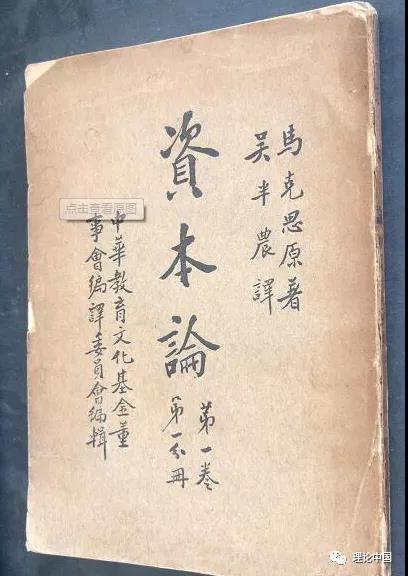 馬克思原著
吴半農譯
資本論
第一卷
(第一分冊
中華教育文化基金董
事會編譯委員會編輯
点击查看原图
理论中国